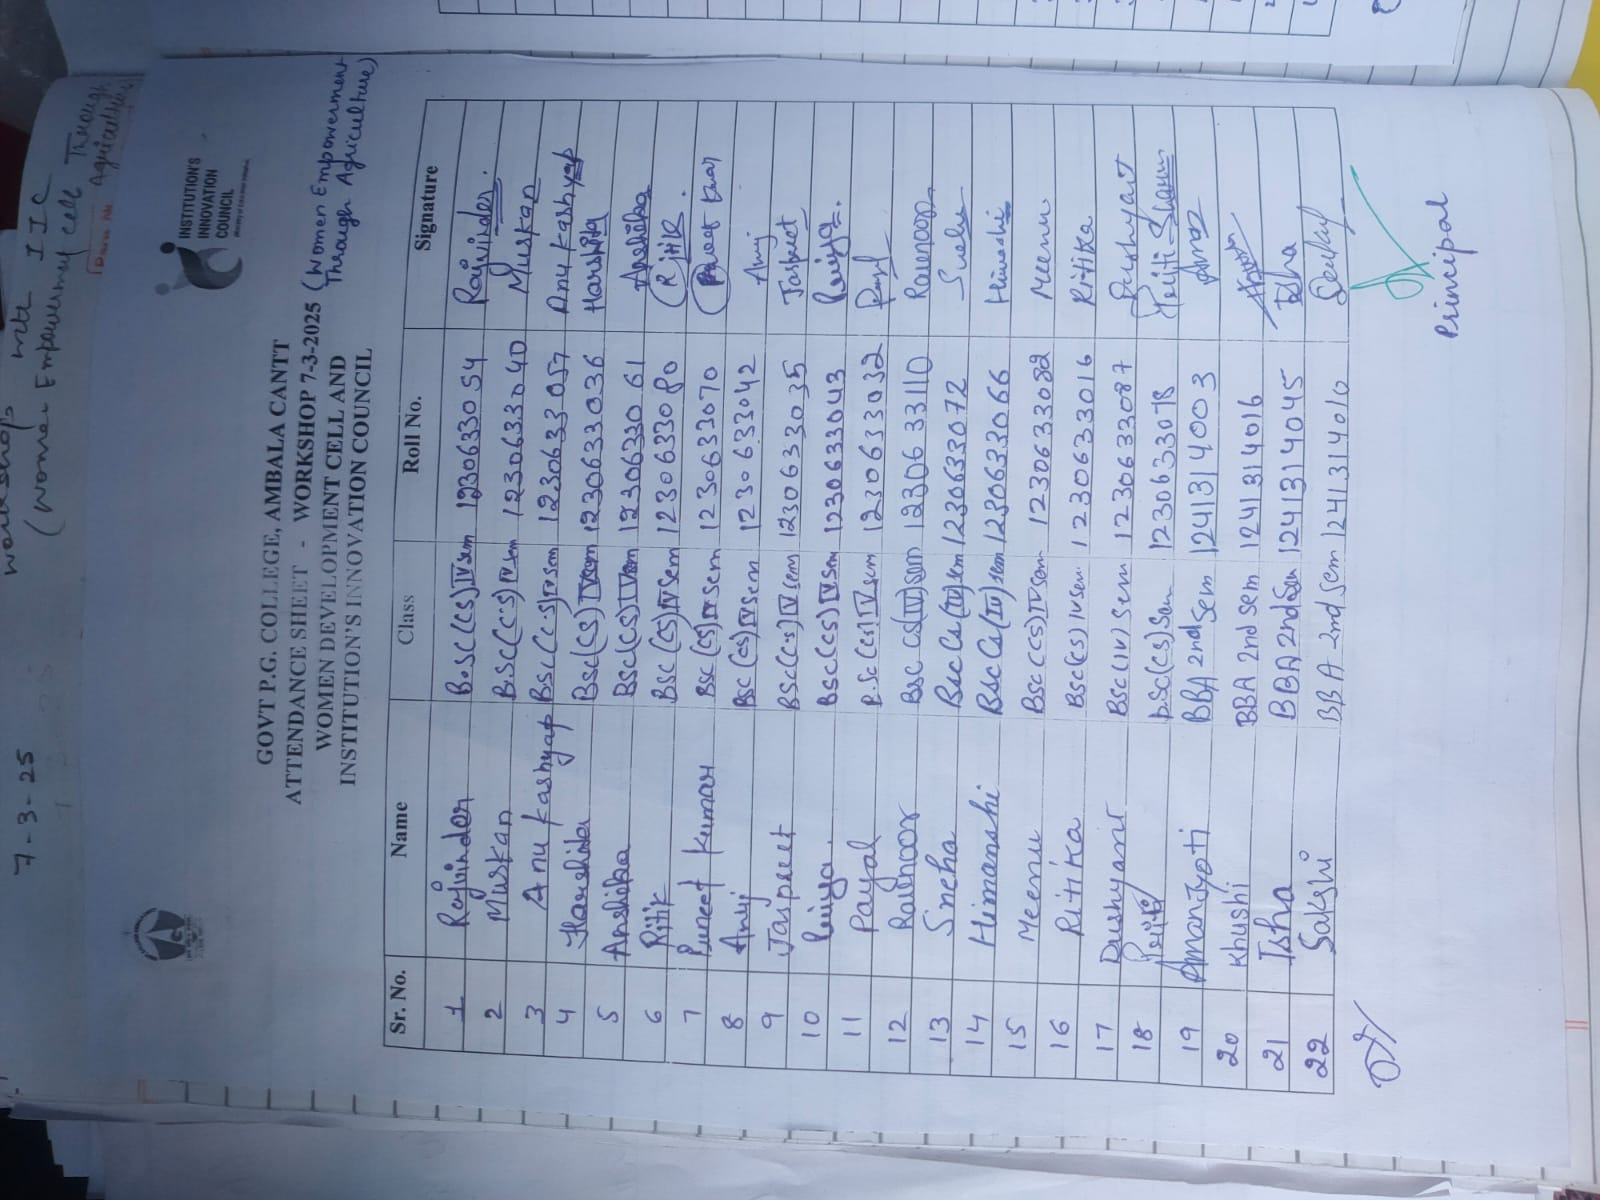 7-3-25
workshop
IIC
(Women Empowerment Cell Through
Agriculture)
INSTITUTION'S
INNOVATION
COUNCIL
GOVT P.G. COLLEGE, AMBALA CANTT
ATTENDANCE SHEET - WORKSHOP 7-3-2025 (Women Empowerment
Through Agriculture)
WOMEN DEVELOPMENT CELL AND
INSTITUTION'S INNOVATION COUNCIL
Sr. No. Name Class Roll No. Signature
1 Rajwinder B.SC(CS)IV sem 1230633054 Rajwinder.
2 Muskan B.SC(CS)IV sem 1230633040 Muskan
3 Anu Kashyap BSC(CS)IV sem 1230633057 Anu Kashyap
4 Harshita BSC(CS) IV sem 1230633036 Harshita
5 Anshika BSC(CS) IV sem 1230633061 Anshika
6 Ritik BSC(CS) IV Sem 1230633080 Ritik.
7 Puneet Kumar BSC(CS)IV sem 1230633070 Puneet Kumar
8 Anuj BSC(CS)IV Sem 1230633042 Anuj
9 Jaspreet BSC(CS)IV sem 1230633035 Jaspreet
10 BSC(CS)IV Sem 1230633043
11 Payal B.SC(CS)IV sem 1230633032
12 BSC CS(IV)sem 1230633110
13 Sneha BSC CS(IV)sem 1230633072 Sneha
14 Himanshi BSC CS(IV)sem 1230633066 Himanshi
15 Meenu BSC(CS)IV sem 1230633082 Meenu
16 Ritika BSC(CS)IV sem 1230633016 Ritika
17 Dushyant BSC(IV) Sem 1230633087 Dushyant
18 B.SC(CS)Sem 1230633078
19 Amanjyoti BBA 2nd Sem 1241314003 Aman
20 Khushi BBA 2nd sem 1241314016
21 Isha BBA 2nd Sem 1241314045 Isha
22 Sakshi BBA 2nd Sem 1241314010
Principal